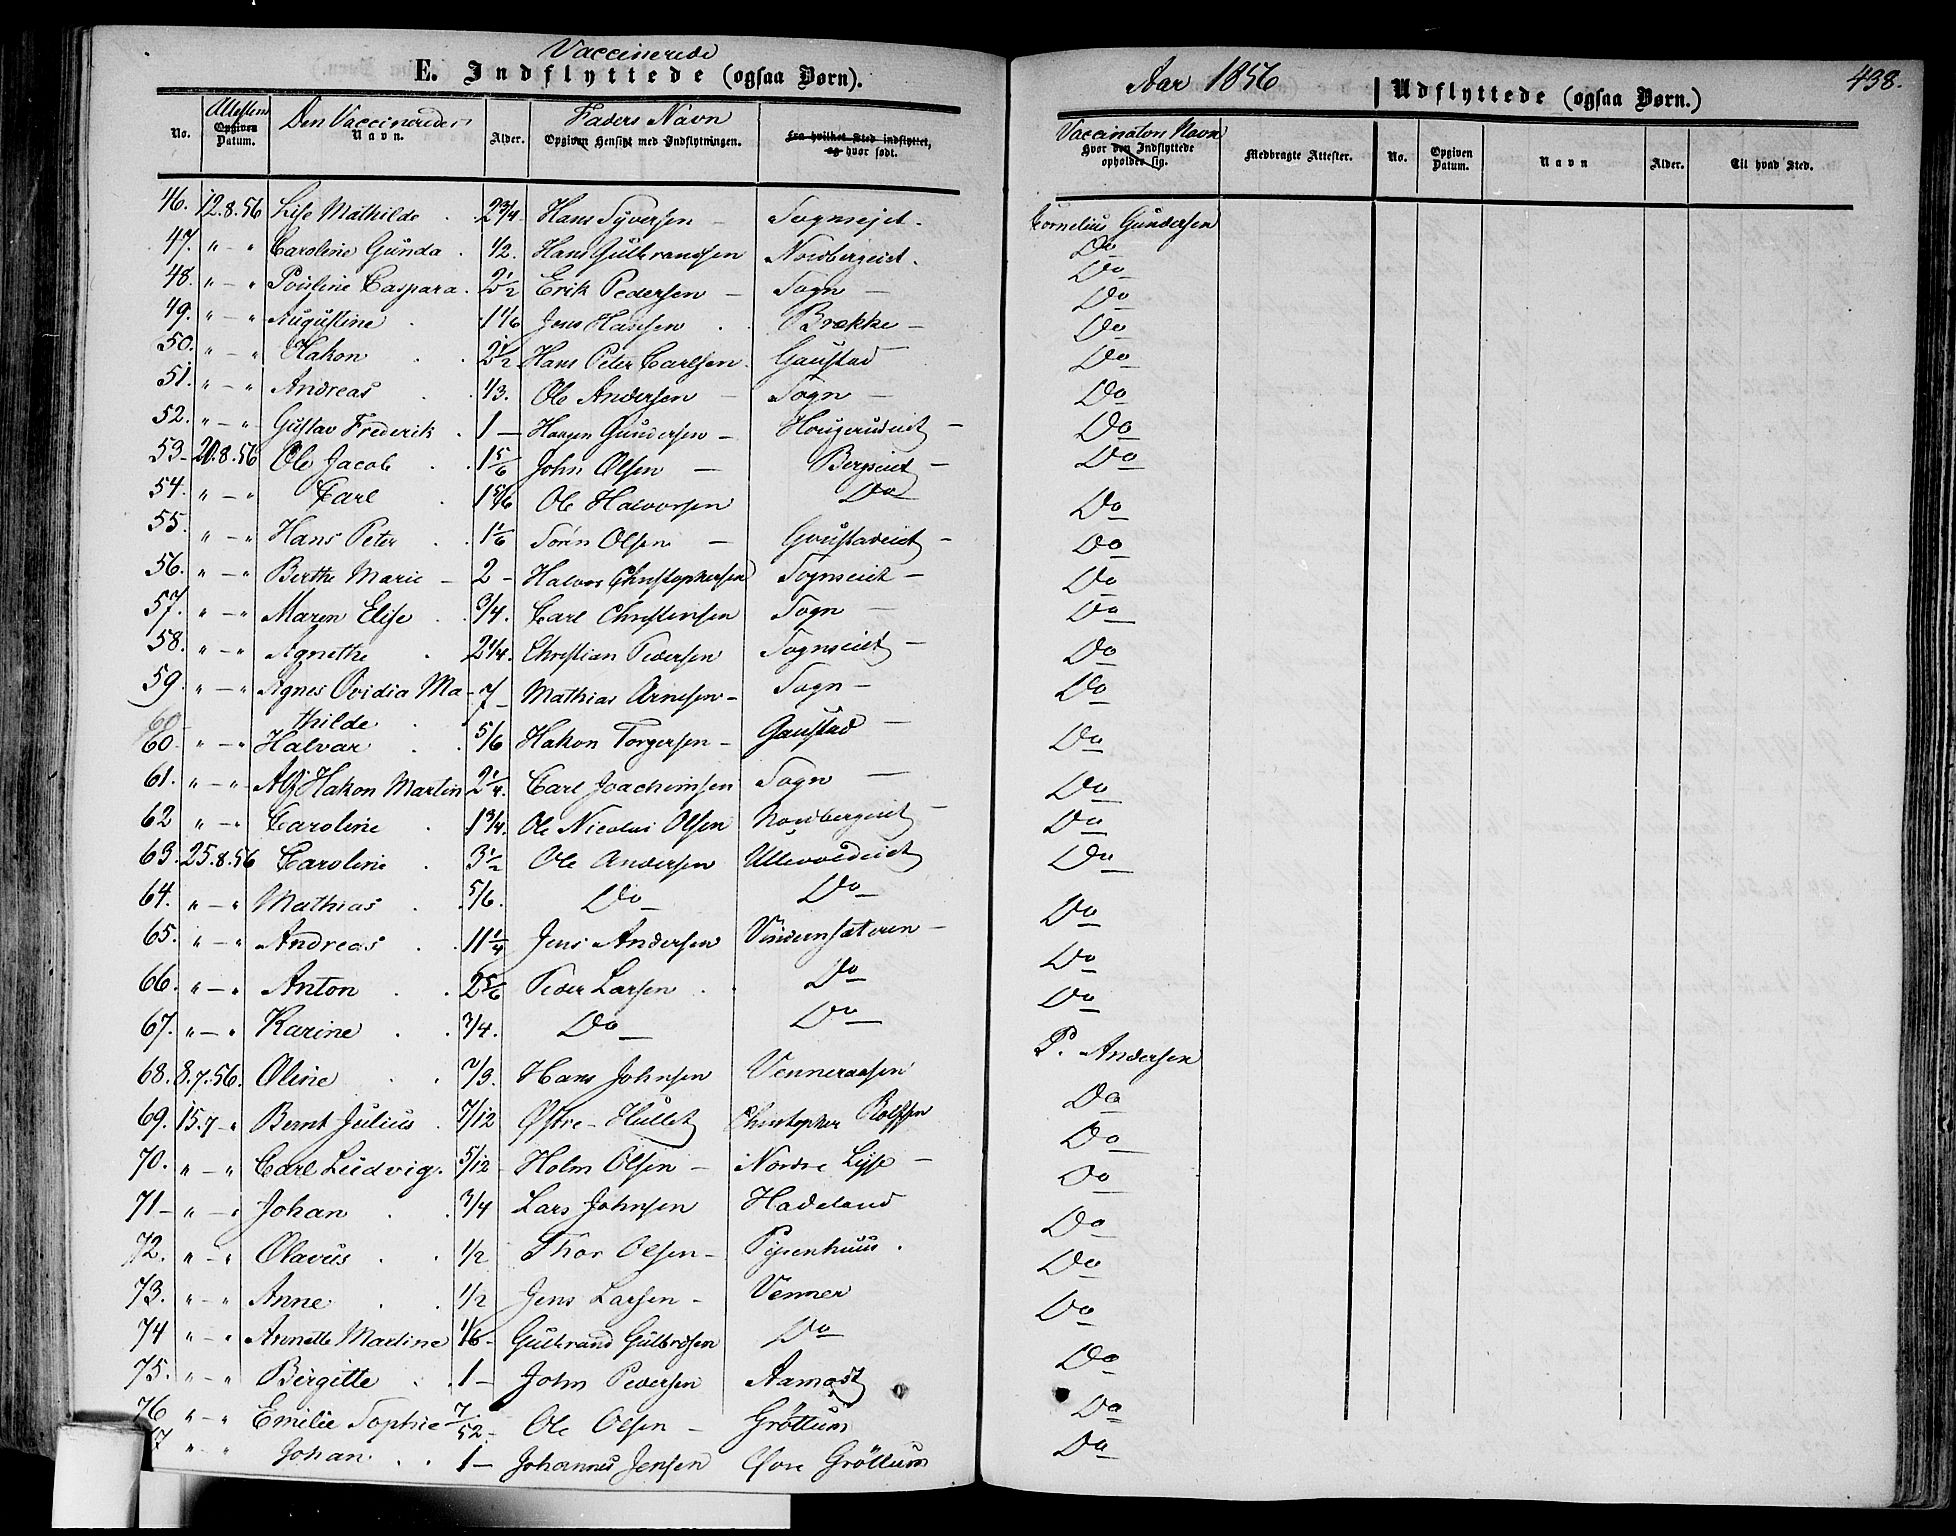 Vaccinerede
E. Indflyttede (ogsaa Børn).
Aar 1856
Udflyttede (ogsaa Børn.)
438.
No. Attestens Opgiven Datum. Den Vaccineredes Navn. Alder. Faders Navn Opgiven Hensigt med Indflytningen. fra hvilket Sted indflyttet, og hvor født. Vaccinatørs Navn Hvor den Indflyttede opholder sig. Medbragte Attester. No. Opgiven Datum. Navn Alder. Til hvad Sted.
46. 12.8.56 Lise Mathilde 2 3/4 Hans Syversen Sognsejet Cornelius Gundersen
47. " - " Caroline Gunda 1/2 Hans Gulbrandsen Nordbergeiet Do
48. " - " Pouline Caspara 2 1/2 Erik Pedersen Sogn Do
49. " - " Augustine 1 1/6 Jens Hansen Brække Do
50. " - " Hakon 2 1/2 Hans Peter Carlsen Gaustad Do
51. " - " Andreas 1/3. Ole Andersen Sogn Do
52. " - " Gustav Frederik 1 - Haagen Gundersen Hougerudeiet Do
53 - 20.8.56 Ole Jacob 1 5/6 John Olsen Bergseiet Do
54. " - " Carl 1 5/6 Ole Halvorsen Do Do
55. " - " Hans Peter 1 1/6 Sørn Olsen Goustadeiet Do
56. " - " Berthe Marie 2 - Halvor Christophersen Sognseiet Do
57. " - " Maren Elise 3/4. Carl Christensen Sogn Do
58. " - " Agnethe 2 1/4. Christian Pedersen Sognseiet Do
59. " - " Agnes Ovidia Ma- 7 - Mathias Arnesen Sogn Do
60 - thilde
60. " - " Halvar 5/6 Hakon Torgersen Gaustad Do
61. " - " Alf Hakon Martin 2 1/4. Carl Joachimsen Sogn Do
62 " - " Caroline 1 3/4. Ole Nicolai Olsen Nordbergeiet Do
63. 25.8.56 Caroline 3 1/2 Ole Andersen Ullevoldeiet Do
64. " - " Mathias 5/6. Do Do Do
65. " - " Andreas 11 1/4 Jens Andersen Vindernsæteren Do
66. " - " Anton 2 5/6 Peder Larsen Do Do
67. " - " Karine 3/4. Do Do
68. 8.7.56. Oline 2/3. Hans Johnsen Venneraasen P. Andersen
69. 15.7 - " Bernt Julius 7/12 Østre - Hullet Christopher Rolfsen Do
70. " - " Carl Ludvig. 5/12 Holm Olsen Nordre Lysse Do
71 - " - " Johan 3/4 Lars Johnsen Hadeland Do
72. " - " Olavus 1/2 Thor Olsen Pipenhuus Do
73. " - " Anne 1/2 Jens Larsen Venner Do
74 " - " Annette Martine 1/6 - Gulbrand Gulbrdsen Do Do
75. " - " Birgitte 1 - John Pedersen Aamodt Do
76 " - " Emilie Sophie 7/52 - Ole Olsen Grøttum Do
7 " " Johan 1 - Johannes Jensen Øvre Grøttum Do